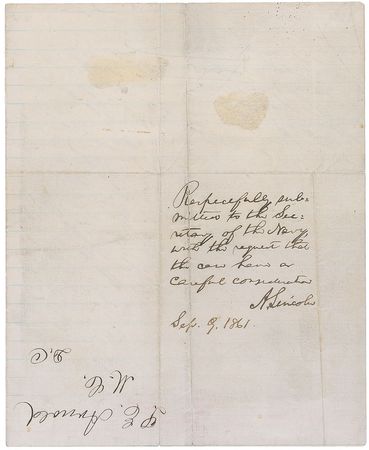 Respectfully sub-
mitted to the Sec-
retary of the Navy
with the request that
the case have a
careful consideration
A. Lincoln
Sep. 9, 1861
Arnold
D.C